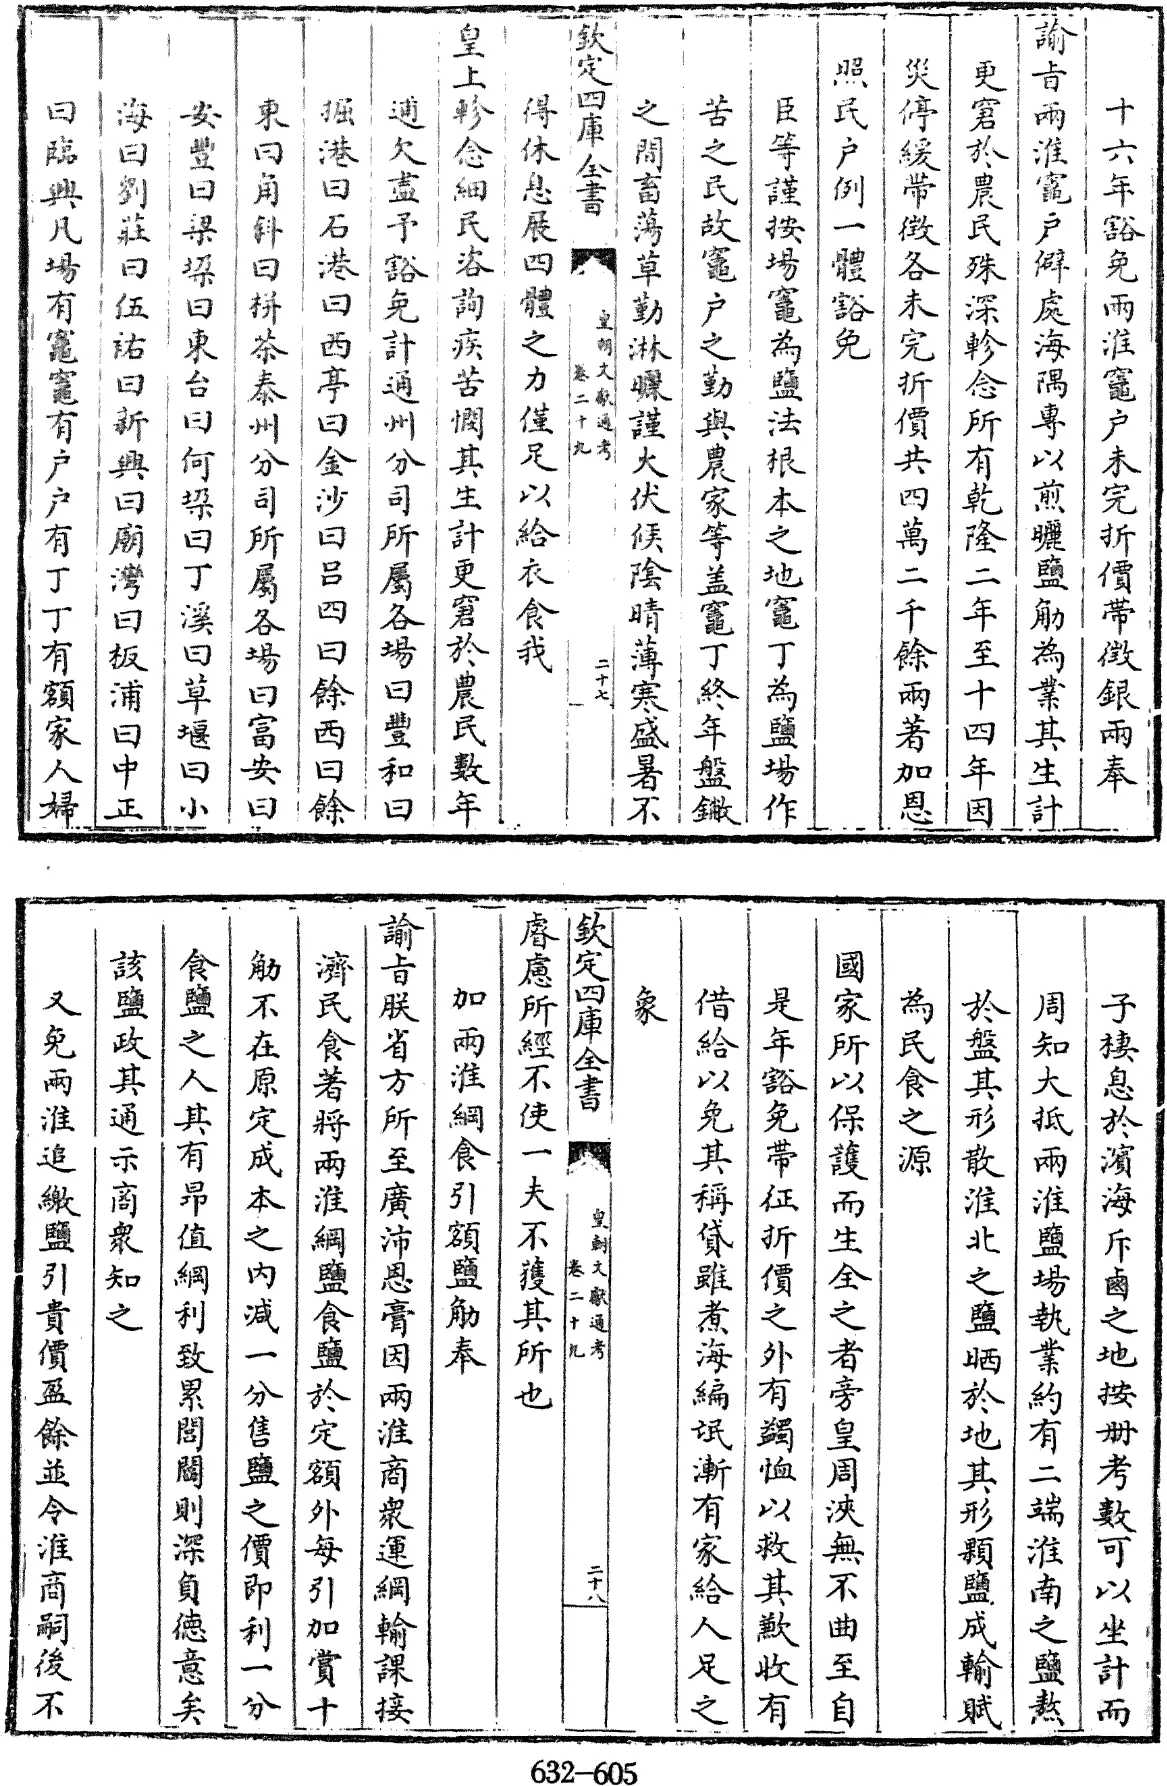 十六年豁免兩淮竈户未完折價帶徵銀兩奉
諭㫖兩淮竈户僻處海隅專以煎曬鹽觔為業其生計
更窘於農民殊深軫念所有乾隆二年至十四年因
災停緩帶徴各未完折價共四萬二千餘兩著加恩
照民户例一體豁免
臣等謹按場竈為鹽法根本之地竈丁為鹽場作
苦之民故竈户之勤與農家等盖竈丁終年盤䥕
之間畜蕩草勤淋曬謹火伏候陰晴薄寒盛暑不
欽定四庫全書
皇朝文獻通考
卷二十九
二十七
得休息展四體之力僅足以給衣食我
皇上軫念細民咨詢疾苦憫其生計更窘於農民數年
逋欠盡予豁免計通州分司所屬各場曰豐和曰
掘港曰石港曰西亭曰金沙曰吕四曰餘西曰餘
東曰角斜曰栟茶泰州分司所屬各場曰富安曰
安豐曰梁垜曰東台曰何垜曰丁溪曰草堰曰小
海曰劉莊曰伍祐曰新興曰廟灣曰板浦曰中正
曰臨興凡場有竈竈有户户有丁丁有額家人婦
子棲息於濱海斥鹵之地按册考數可以坐計而
周知大抵兩淮鹽場執業約有二端淮南之鹽熬
於盤其形散淮北之鹽晒於地其形顆鹽成輸賦
為民食之源
國家所以保護而生全之者旁皇周浹無不曲至自
是年豁免帶征折價之外有蠲恤以救其歉收有
借給以免其稱貸雖煮海編氓漸有家給人足之
象
欽定四庫全書
皇朝文獻通考
卷二十九
二十八
睿慮所經不使一夫不獲其所也
加兩淮綱食引額鹽觔奉
諭㫖朕省方所至廣沛恩膏因兩淮商衆運綱輸課接
濟民食著將兩淮綱鹽食鹽於定額外每引加賞十
觔不在原定成本之内減一分售鹽之價即利一分
食鹽之人其有昂值綱利致累閭閻則深負徳意矣
該鹽政其通示商衆知之
又免兩淮追繳鹽引貴價盈餘並令淮商嗣後不
632—605